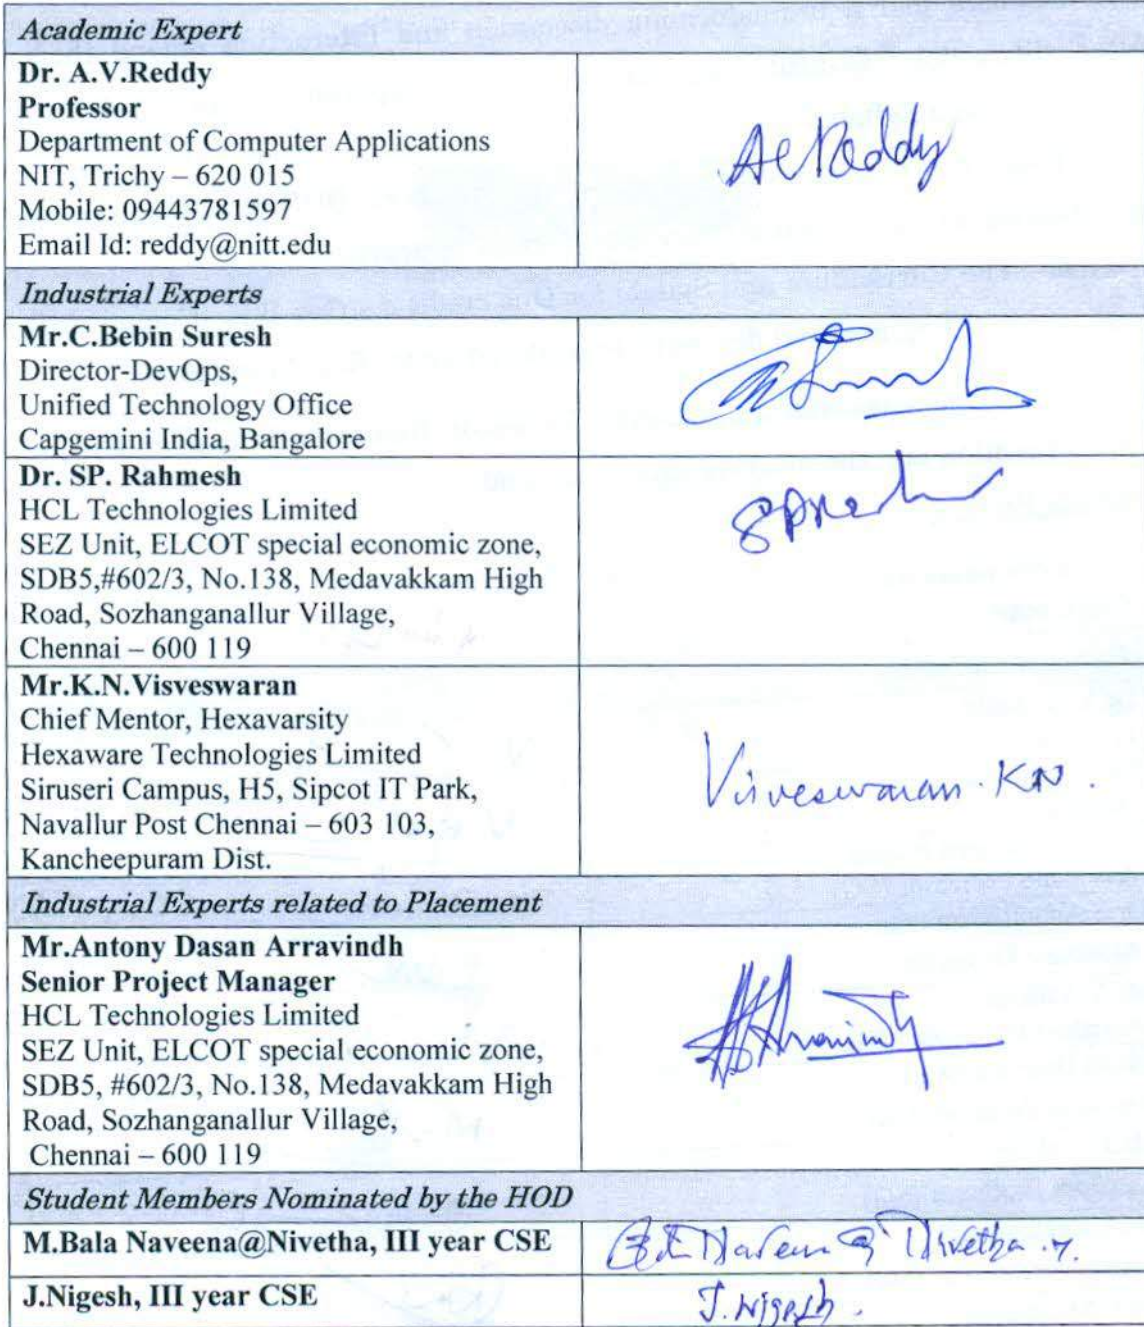 Academic Expert
Dr. A.V.Reddy
Professor
Department of Computer Applications
NIT, Trichy – 620 015
Mobile: 09443781597
Email Id: reddy@nitt.edu
Industrial Experts
Mr.C.Bebin Suresh
Director-DevOps,
Unified Technology Office
Capgemini India, Bangalore
Dr. SP. Rahmesh
HCL Technologies Limited
SEZ Unit, ELCOT special economic zone,
SDB5,#602/3, No.138, Medavakkam High
Road, Sozhanganallur Village,
Chennai – 600 119
Mr.K.N.Visveswaran
Chief Mentor, Hexavarsity
Hexaware Technologies Limited
Siruseri Campus, H5, Sipcot IT Park,
Navallur Post Chennai – 603 103,
Kancheepuram Dist.
Visveswaran. KN.
Industrial Experts related to Placement
Mr.Antony Dasan Arravindh
Senior Project Manager
HCL Technologies Limited
SEZ Unit, ELCOT special economic zone,
SDB5, #602/3, No.138, Medavakkam High
Road, Sozhanganallur Village,
Chennai – 600 119
Student Members Nominated by the HOD
M.Bala Naveena@Nivetha, III year CSE
J.Nigesh, III year CSE
J. Nigesh.